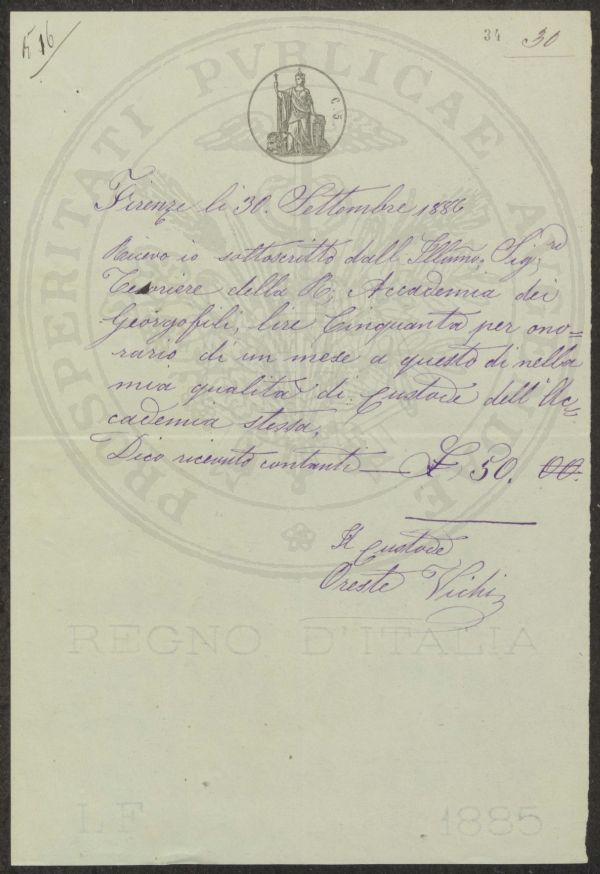 516
34 30
C. 5.
Firenze li 30. Settembre 1886
Ricevo io sottoscritto dall Illmo, Sigre
Tesoriere della R, Accademia dei
Georgofili, lire Cinquanta per ono=
rario di un mese a questo di nella
mia qualità di Custode dell'Ac=
cademia stessa,
Dico ricevuto contanti — £ 50. 00.
Il Custode
Oreste Vichi
PROSPERITATI PVBLICAE
REGNO D'ITALIA
LF 1885